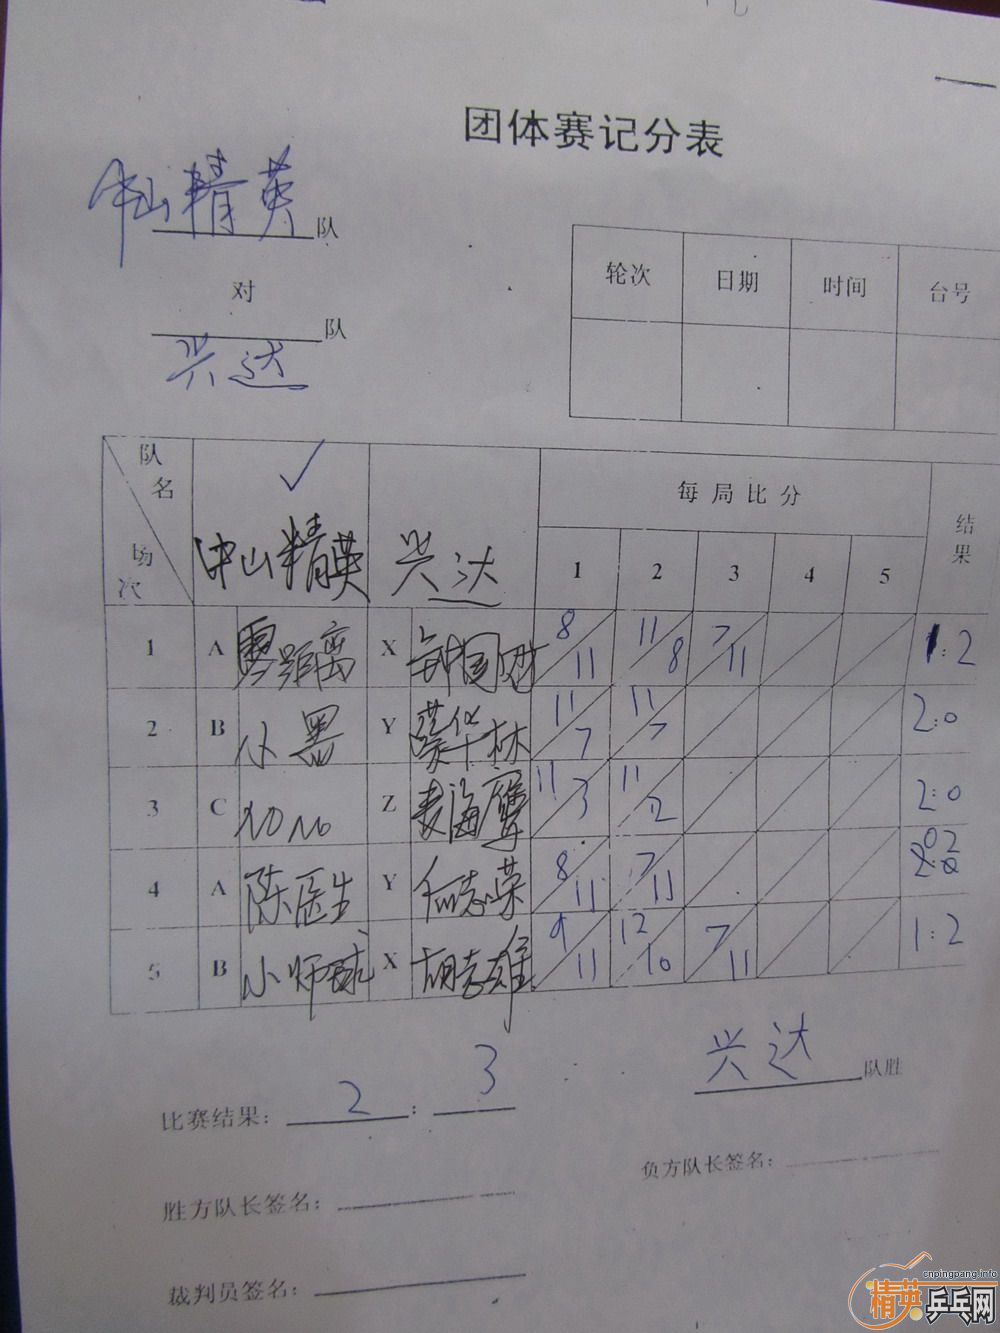 团体赛记分表
中山精英队
对
队
兴达
轮次 日期 时间 台号
队名 场次 中山精英 兴达 每局比分 结果
1 2 3 4 5
1 A 零距离 X 钟国 8/11 11/8 7/11 1:2
2 B 小黑 Y 蔡华林 11/7 11/7 2:0
3 C NONO Z 麦海 11/3 11/2 2:0
4 A 陈医生 Y 何志荣 8/11 7/11 0 2
5 B 小师球 X 胡志雄 9/11 12/10 7/11 1:2
比赛结果: 2 : 3 兴达 队胜
胜方队长签名: 负方队长签名:
裁判员签名:
cnpingpang.info
精英乒乓网